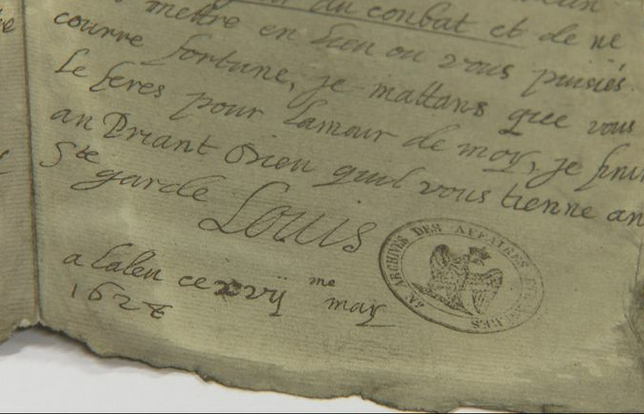 du conbat et de ne
mettre en lieu ou vous puisiés
courre fortune, je mattans que vous
le feres pour lamour de moy, je fini
an Priant Dieu quil vous tienne an
Ste garde Louis
a Lalen ce xvij me may
1628
ARCHIVES DES AFFAIRES ETRANGERES